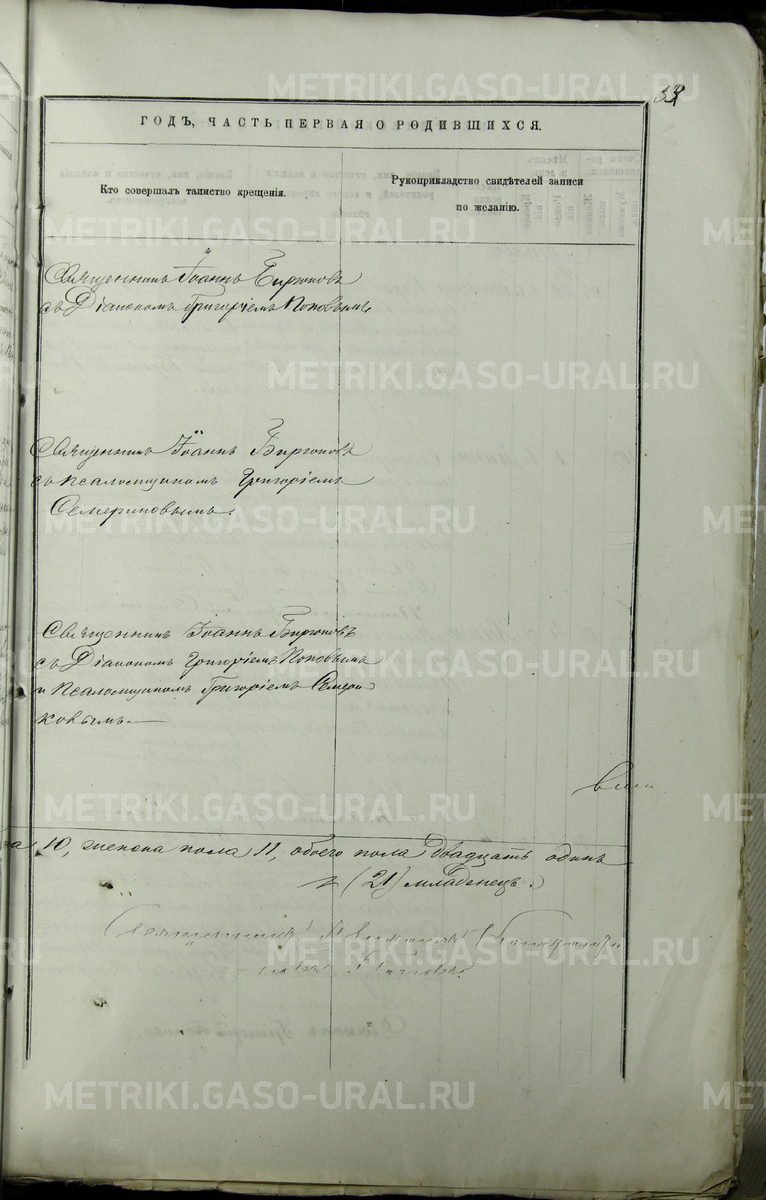 METRIKI.GASO-URAL.RU
33
ГОДЪ, ЧАСТЬ ПЕРВАЯ О РОДИВШИХСЯ.
Кто совершалъ таинство крещенія.
Рукоприкладство свидѣтелей записи
по желанію.
Священникъ Іоаннъ Бирюковъ
съ Діакономъ Григоріемъ Поповымъ,
Священникъ Іоаннъ Бирюковъ
съ псаломщикомъ Григоріемъ
Семериковымъ.
Священникъ Іоаннъ Бирюковъ
съ Діакономъ Григоріемъ Поповымъ
и Псаломщикомъ Григоріемъ Семери
ковымъ.
10, женска пола 11, обоего пола двадцать одинъ
(21) младенецъ.
Священникъ